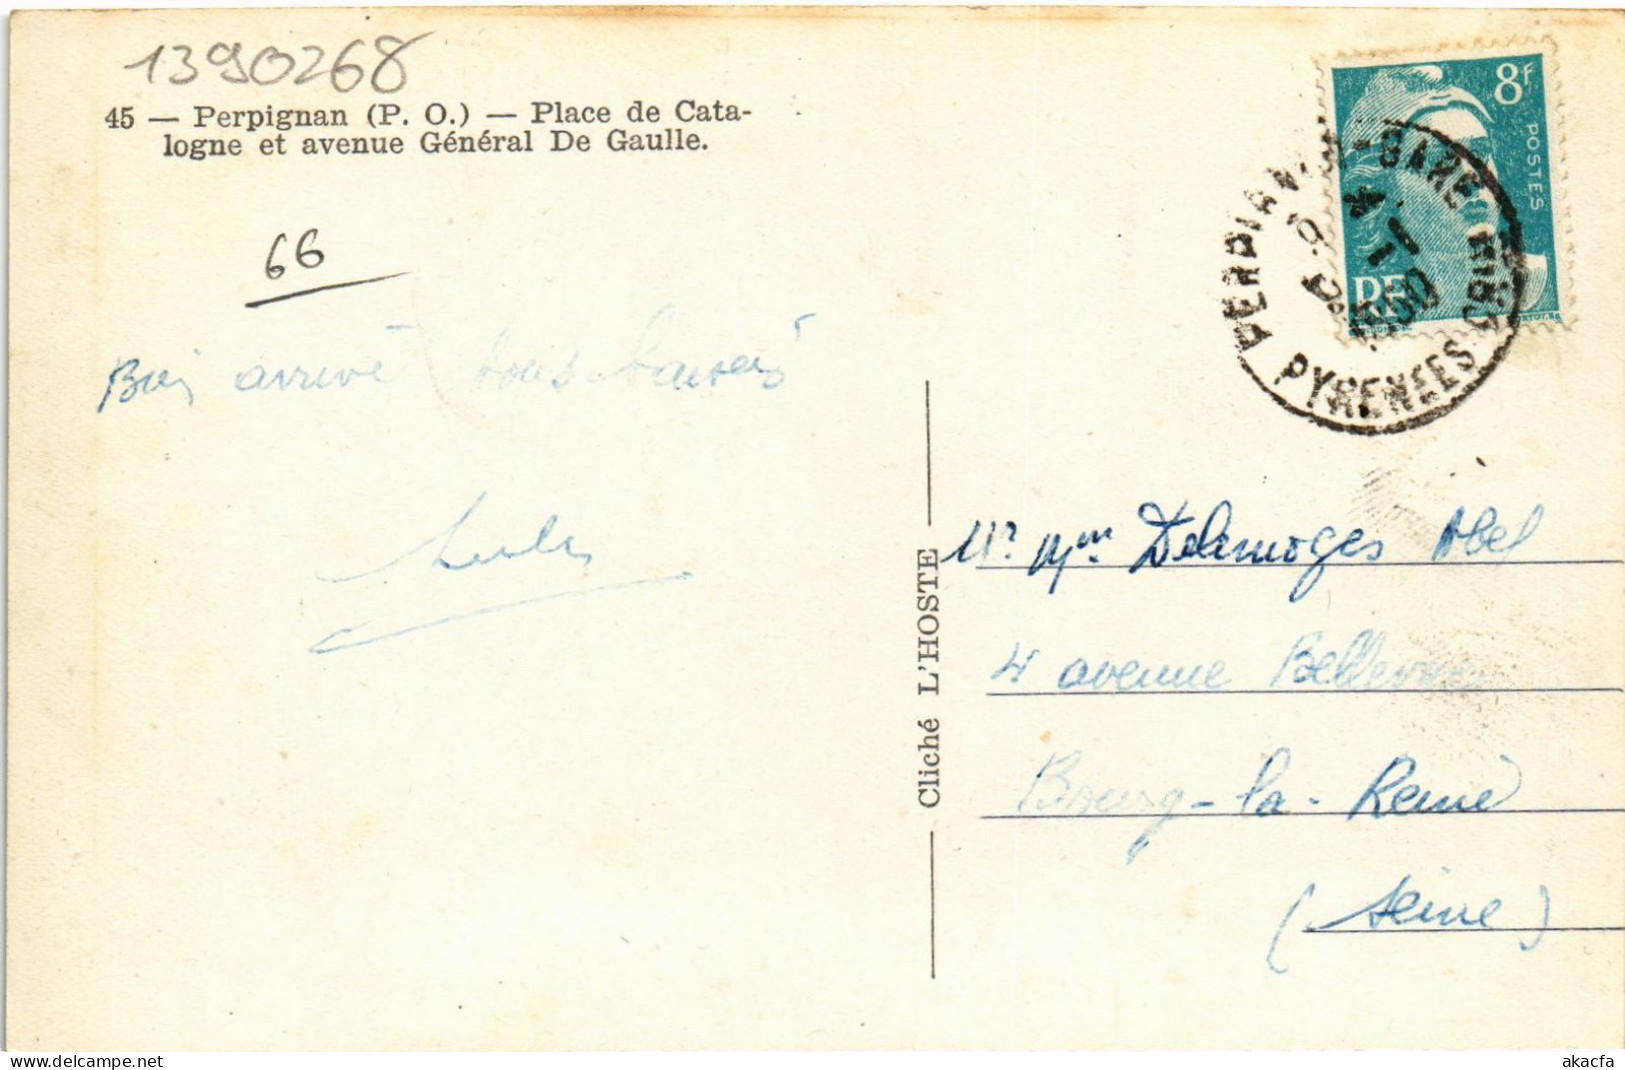 1390268
45 — Perpignan (P. O.) — Place de Cata-
logne et avenue Général De Gaulle.
66
Bien arrivé tous baisers
8F
POSTES
RF
PERPIGNAN-GARE
1950
PYRENEES
Cliché L'HOSTE
Mr Mme Delimoges Abel
4 avenue Bellevue
Bourg-la-Reine
(Seine)
akacfa
delcampe.net